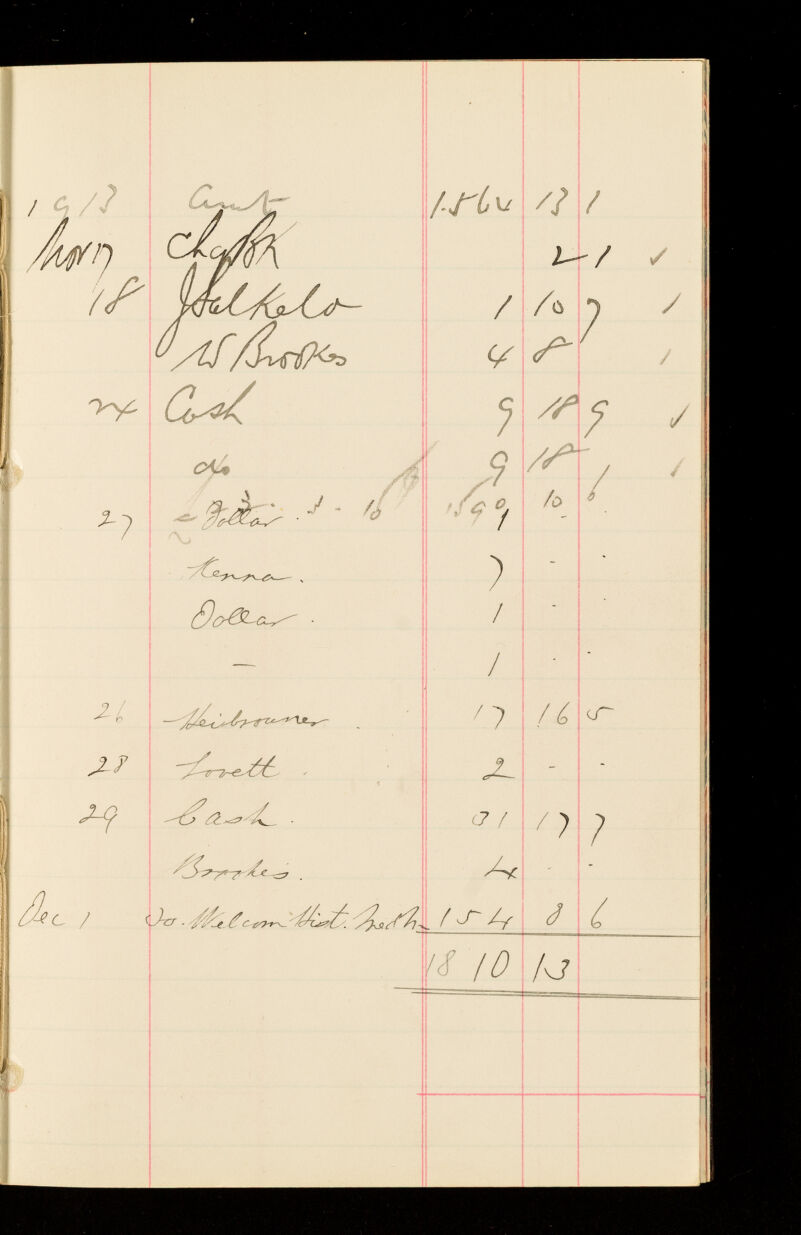 1913 Amt 1.564 13 1
Nov 17 chq BK 2 1 ✓
18 J Salkeld 1 10 7 /
W Brookes 4 8 /
24 Cash 9 18 9 ✓
do 9 18 /
1590 10 6
27 Dollar . 1 - -
Kenna . 7 - -
Dollar . 1 - -
— 1 - -
26 17 16 5
28 Lovett 2 - -
29 Cash . 31 17 7
Brookes . 4 - -
Dec 1 Do. Welcom Hist. 154 8 6
1810 13